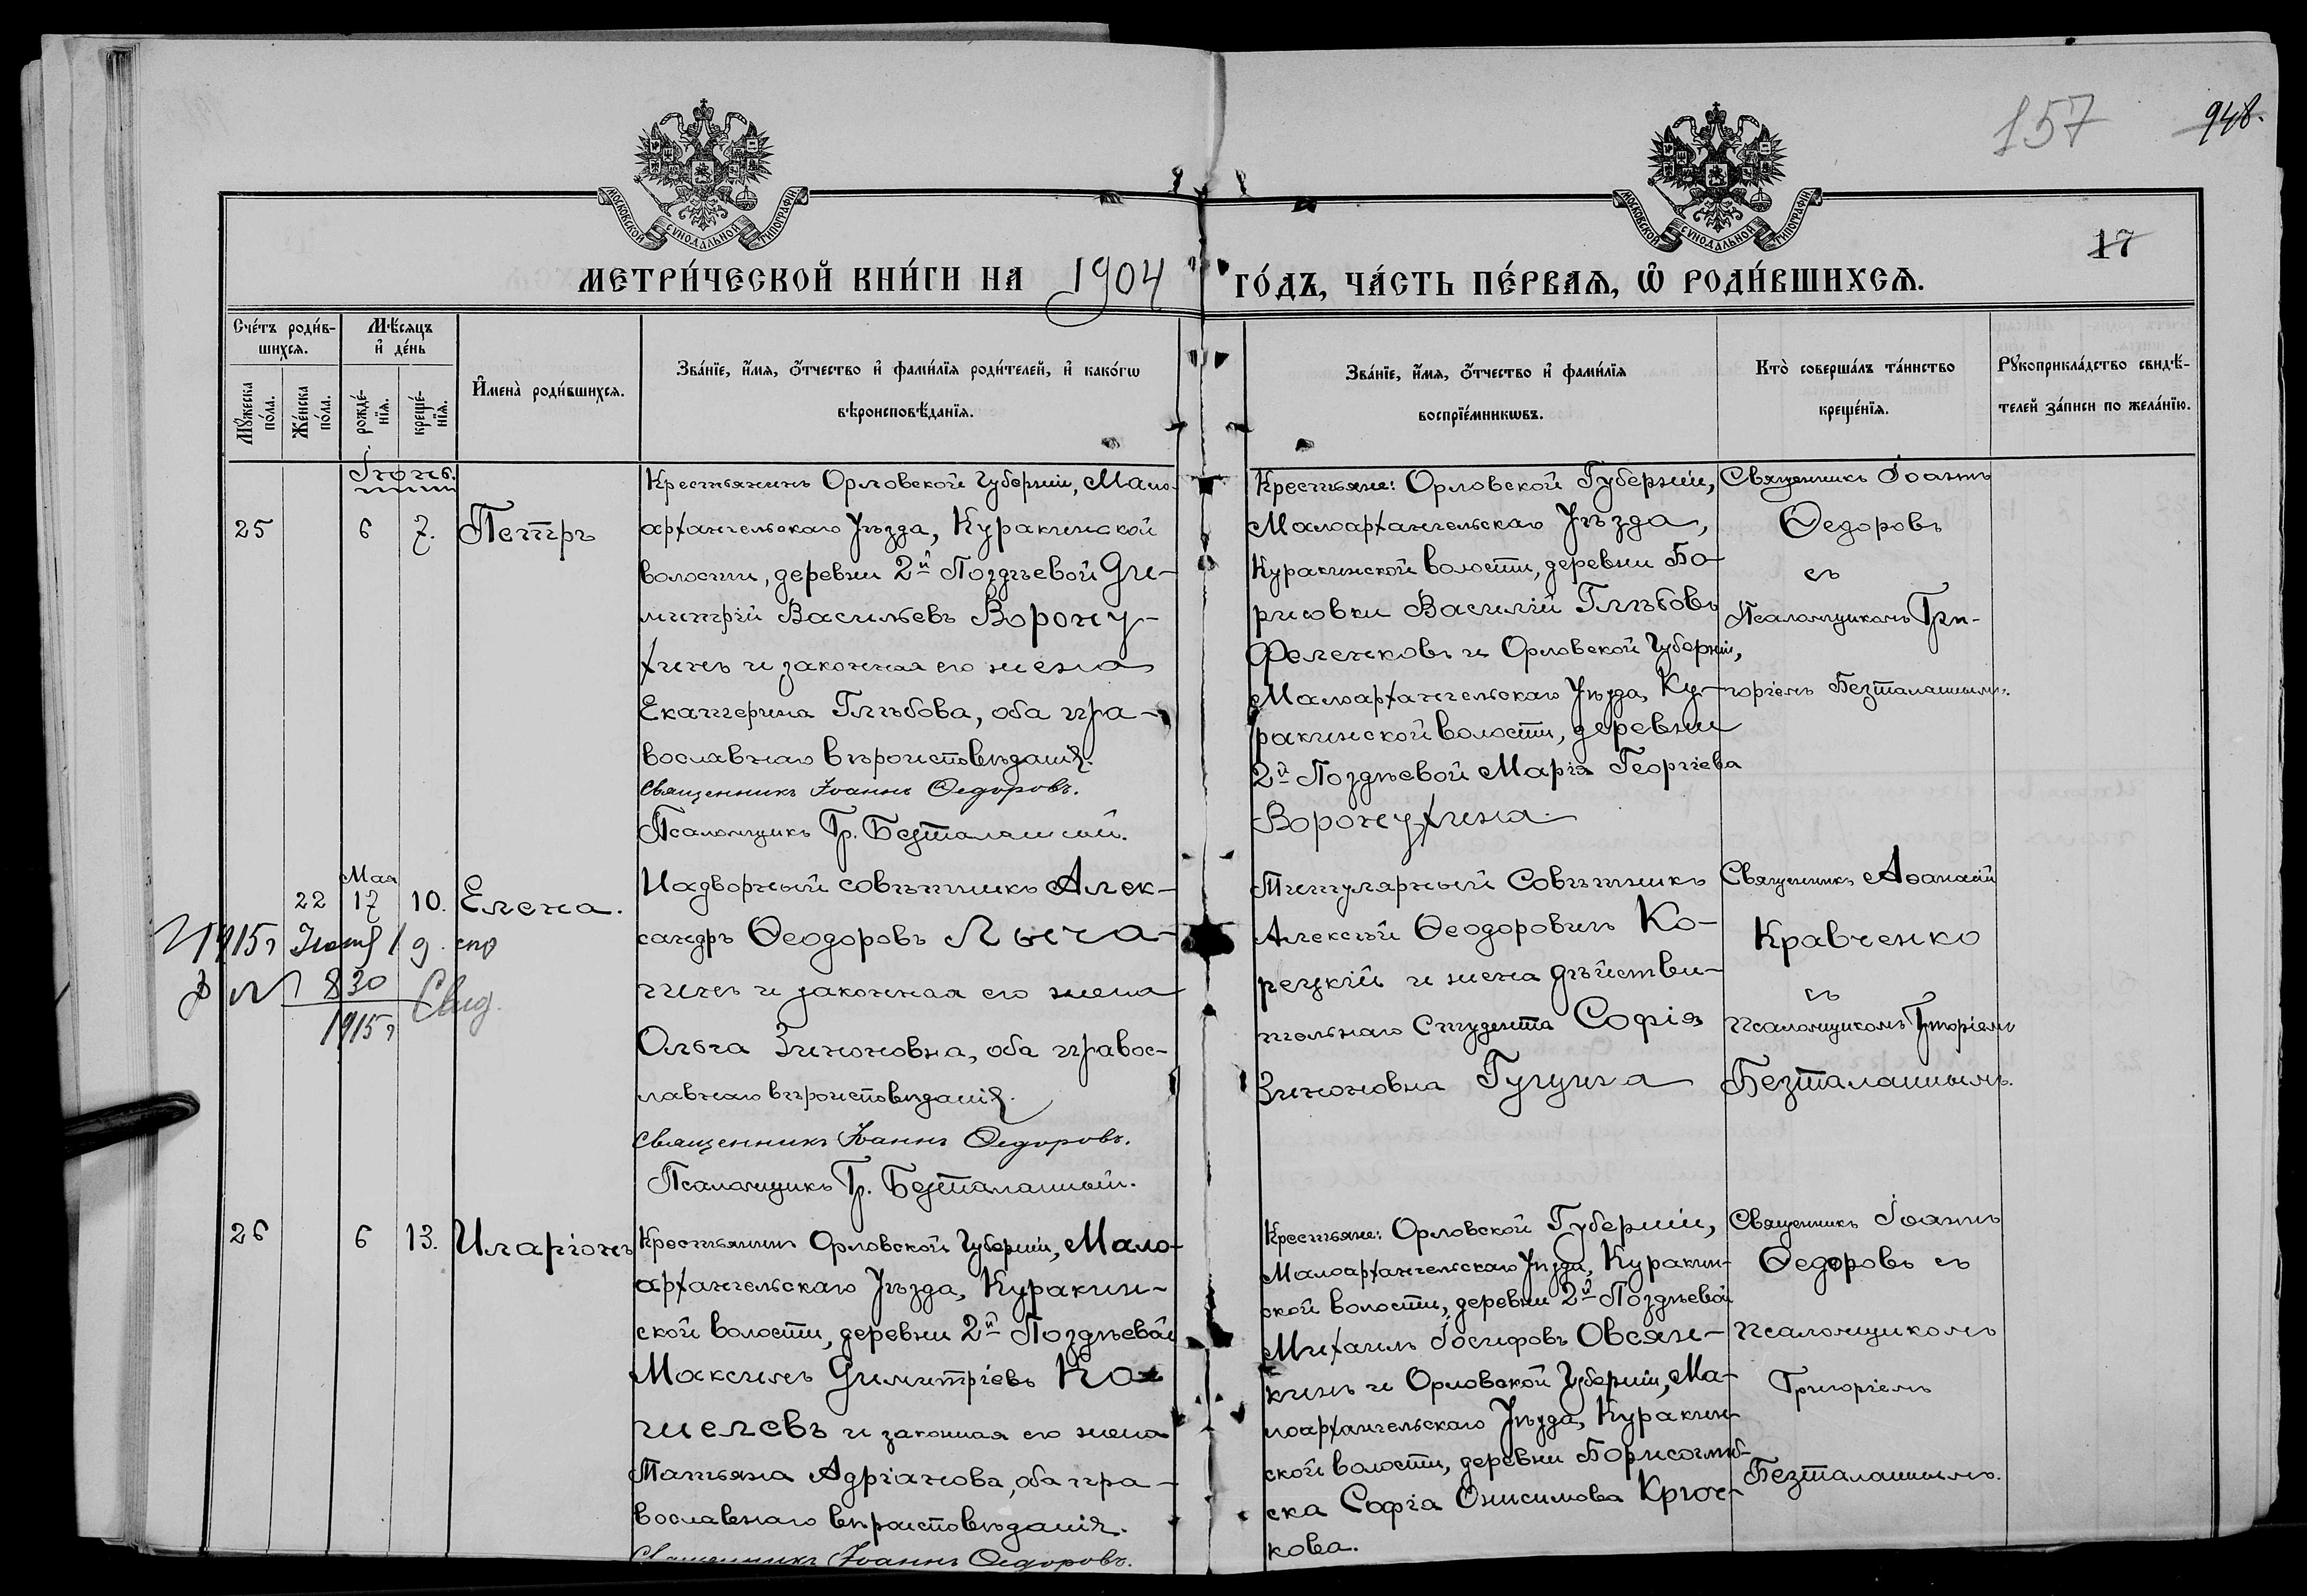 157
948.
МОСКОВСКОЙ СѴНОДАЛЬНОЙ ТИПОГРАФІИ
МОСКОВСКОЙ СѴНОДАЛЬНОЙ ТИПОГРАФІИ
17
МЕТРИ́ЧЕСКОЙ КНИ́ГИ НА 1904 ГО́ДЪ, ЧА́СТЬ ПЕ́РВАѦ, Ѡ҆ РОДИ́ВШИХСѦ.
Сче́тъ роди́в-
шихсѧ.
Мѣ́сяцъ
и҆ де́нь
Мꙋ́жеска по́ла.
Же́нска по́ла.
рожде́-
нїѧ.
креще́-
нїѧ.
И҆мена̀ роди́вшихсѧ.
Зва́нїе, и҆́мѧ, ѻ҆́тчество и҆ фами́лїѧ роди́телей, и҆ како́гѡ
вѣроисповѣ́данїѧ.
Зва́нїе, и҆́мѧ, ѻ҆́тчество и҆ фами́лїѧ
воспрїе́мникѡвъ.
Кто̀ соверша́лъ та́инство
креще́нїѧ.
Рꙋкоприкла́дство свидѣ́-
телей за́писи по жела́нїю.
Іюнь.
25 6 7. Петръ
Крестьянинъ Орловской Губерніи, Мало-
архангельскаго Уѣзда, Куракинской
волости, деревни 2й Позднѣевой Ди-
митрій Васильевъ Ворону-
хинъ и законная его жена
Екатерина Глѣбова, оба пра-
вославнаго вѣроисповѣданія.
Священникъ Іоаннъ Ѳедоровъ.
Псаломщикъ Гр. Безталанный.
Крестьяне: Орловской Губерніи,
Малоархангельскаго Уѣзда,
Куракинской волости, деревни Бо-
рисовки Василій Глѣбовъ
Феленковъ и Орловской Губерніи,
Малоархангельскаго Уѣзда, Ку-
ракинской волости, деревни
2й Позднѣевой Марія Георгіева
Воронухина.
Священникъ Іоаннъ
Ѳедоровъ
съ
Псаломщикомъ Гри-
горіемъ Безталаннымъ.
Мая
22 17 10. Елена.
1915г Іюня 1 д.
№ 830
1915г
Свид.
Надворный совѣтникъ Алек-
сандръ Ѳеодоровъ Лыча-
гинъ и законная его жена
Ольга Зиноновна, оба правос-
лавнаго вѣроисповѣданія.
Священникъ Іоаннъ Ѳедоровъ.
Псаломщикъ Гр. Безталанный.
Титулярный Совѣтникъ
Алексѣй Ѳеодоровичъ Ко-
рецкій и жена дѣйстви-
тельнаго студента Софія
Зиноновна
Священникъ Аѳанасій
Кравченко
съ
псаломщикомъ Григоріемъ
Безталаннымъ.
26 6 13. Иларіонъ
Крестьянинъ Орловской Губерніи, Мало-
архангельскаго Уѣзда, Куракин-
ской волости, деревни 2й Позднѣевой
Максимъ Димитріевъ Ко-
шелевъ и законная его жена
Татьяна Адріанова, оба пра-
вославнаго вѣроисповѣданія.
Священникъ Іоаннъ Ѳедоровъ.
Крестьяне: Орловской Губерніи,
Малоархангельскаго Уѣзда, Куракин-
ской волости, деревни 2й Позднѣевой
Михаилъ Іосифовъ Овсян-
кинъ и Орловской Губерніи, Ма-
лоархангельскаго Уѣзда, Куракин-
ской волости, деревни Борисоглѣб-
ска Софія Онисимова Крюч-
кова.
Священникъ Іоаннъ
Ѳедоровъ съ
псаломщикомъ
Григоріемъ
Безталаннымъ.